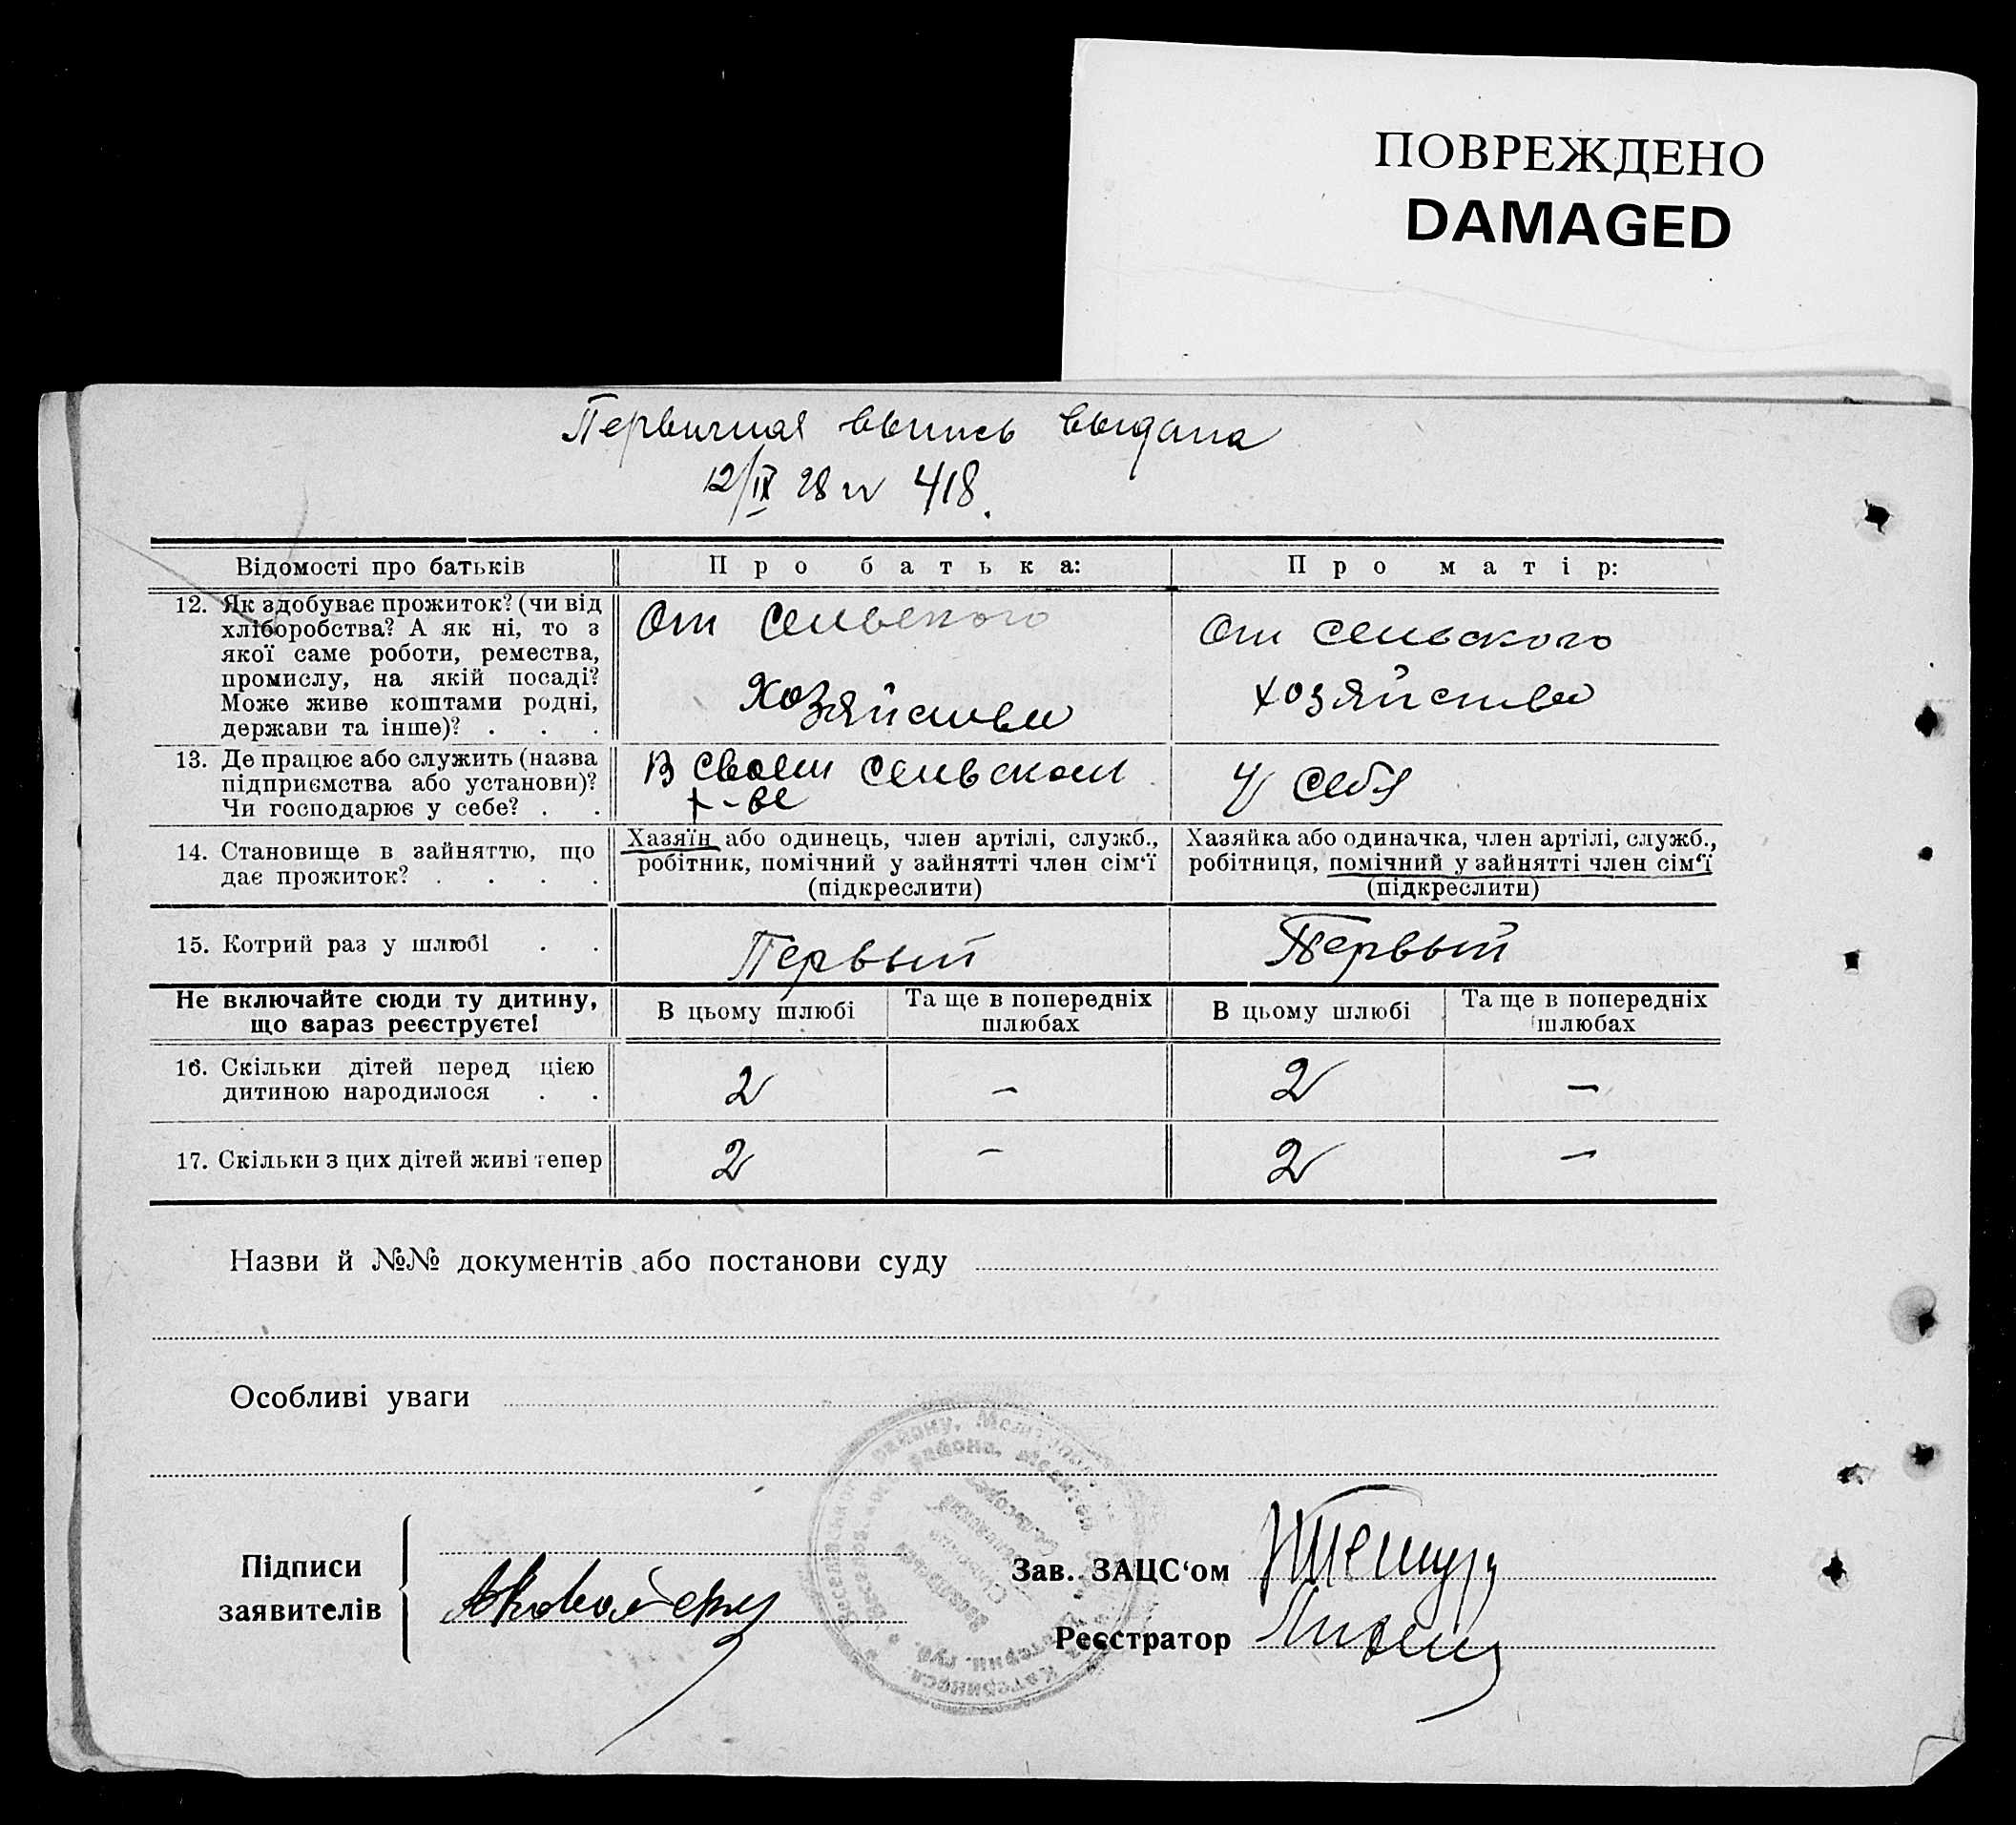 ПОВРЕЖДЕНО
DAMAGED
Первичная выпись выдана
12/IX 28 г. 418.
Відомості про батьків
Про батька:
Про матір:
12. Як здобуває прожиток? (чи від
хліборобства? А як ні, то з
якої саме роботи, ремества,
промислу, на якій посаді?
Може живе коштами родні,
держави та інше)? . . .
От сельского
хозяйства
От сельского
хозяйства
13. Де працює або служить (назва
підприємства або установи)?
Чи господарює у себе? . .
В своем сельском
х-ве
У себя
14. Становище в зайняттю, що
дає прожиток? . . . .
Хазяїн або одинець, член артілі, служб.,
робітник, помічний у зайнятті член сім‘ї
(підкреслити)
Хазяйка або одиначка, член артілі, служб.,
робітниця, помічний у зайнятті член сім‘ї
(підкреслити)
15. Котрий раз у шлюбі . .
Первый
Первый
Не включайте сюди ту дитину,
що зараз реєструєте!
В цьому шлюбі
Та ще в попередніх
шлюбах
В цьому шлюбі
Та ще в попередніх
шлюбах
16. Скільки дітей перед цією
дитиною народилося . .
2
–
2
–
17. Скільки з цих дітей живі тепер
2
–
2
–
Назви й №№ документів або постанови суду
Особливі уваги
Підписи
заявителів
Зав. ЗАЦС‘ом
Реєстратор